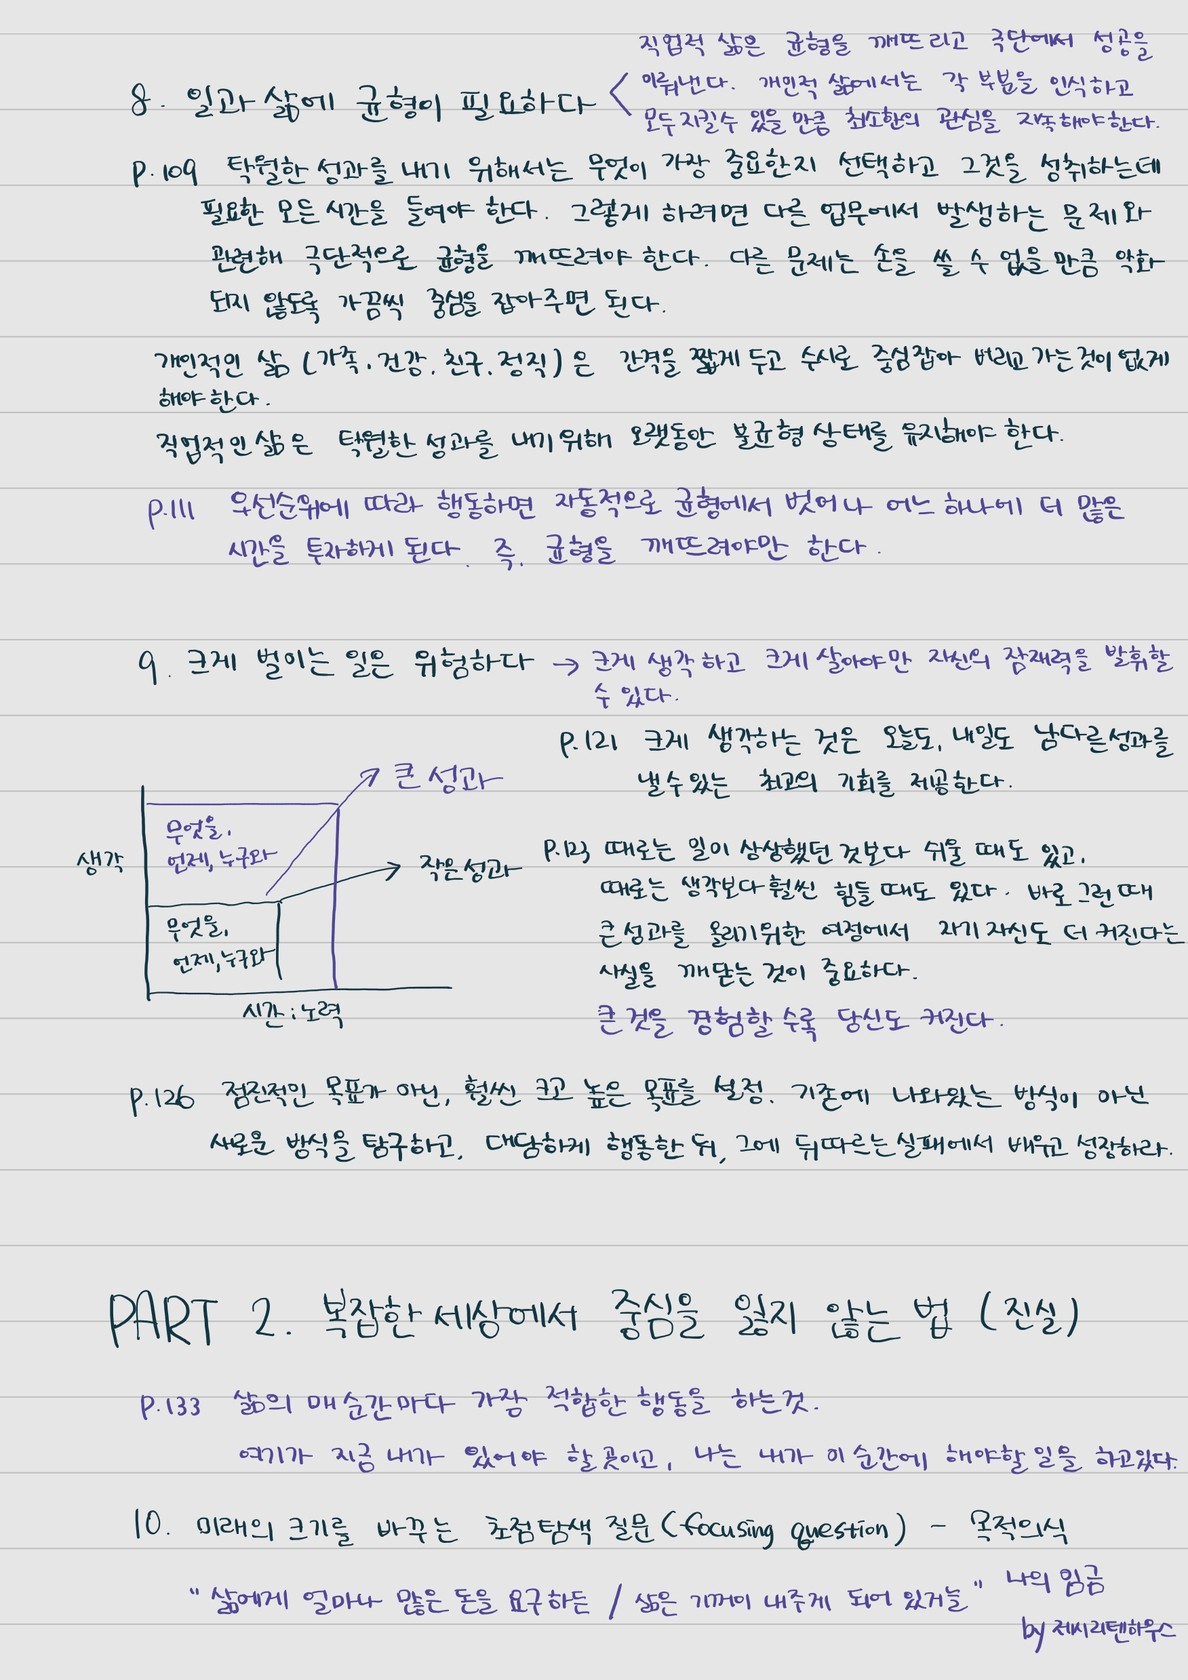 직업적 삶은 균형을 깨뜨리고 극단에서 성공을
8. 일과 삶에 균형이 필요하다 < 이뤄낸다. 개인적 삶에서는 각 부분을 인식하고
모두 지킬 수 있을 만큼 최소한의 관심을 지속해야 한다.
P.109 탁월한 성과를 내기 위해서는 무엇이 가장 중요한지 선택하고 그것을 성취하는데
필요한 모든 시간을 들여야 한다. 그렇게 하려면 다른 업무에서 발생하는 문제와
관련해 극단적으로 균형을 깨뜨려야 한다. 다른 문제는 손을 쓸 수 없을 만큼 악화
되지 않도록 가끔씩 중심을 잡아주면 된다.
개인적인 삶 (가족. 건강. 친구. 정직)은 간격을 짧게 두고 수시로 중심잡아 버리고 가는 것이 없게
해야 한다.
직업적인 삶은 탁월한 성과를 내기 위해 오랫동안 불균형 상태를 유지해야 한다.
P.111 우선순위에 따라 행동하면 자동적으로 균형에서 벗어나 어느 하나에 더 많은
시간을 투자하게 된다. 즉, 균형을 깨뜨려야만 한다.
9. 크게 벌이는 일은 위험하다 → 크게 생각하고 크게 살아야만 자신의 잠재력을 발휘할
수 있다.
P.121 크게 생각하는 것은 오늘도, 내일도 남다른 성과를
낼 수 있는 최고의 기회를 제공한다.
큰 성과
무엇을,
언제, 누구와
생각
작은 성과
무엇을,
언제, 누구와
시간 ; 노력
P.123 때로는 일이 상상했던 것보다 쉬울 때도 있고,
때로는 생각보다 훨씬 힘들 때도 있다. 바로 그런 때
큰 성과를 올리기 위한 여정에서 자기 자신도 더 커진다는
사실을 깨닫는 것이 중요하다.
큰 것을 경험할 수록 당신도 커진다.
P.126 점진적인 목표가 아닌, 훨씬 크고 높은 목표를 설정. 기존에 나와있는 방식이 아닌
새로운 방식을 탐구하고, 대담하게 행동한 뒤, 그에 뒤따르는 실패에서 배우고 성장하라.
PART 2. 복잡한 세상에서 중심을 잃지 않는 법 (진실)
P.133 삶의 매 순간마다 가장 적합한 행동을 하는 것.
여기가 지금 내가 있어야 할 곳이고, 나는 내가 이 순간에 해야할 일을 하고있다.
10. 미래의 크기를 바꾸는 초점탐색 질문 (focusing question) - 목적의식
"삶에게 얼마나 많은 돈을 요구하든 / 삶은 기꺼이 내주게 되어 있거늘" 나의 임금
by 제시 리텐하우스